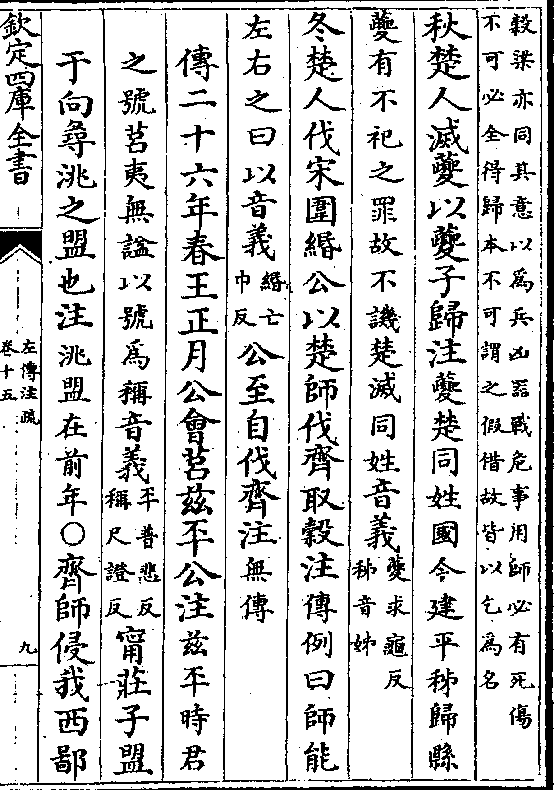 穀梁亦同其意以爲兵凶器戰危事用師必有死傷
不可必全得歸本不可謂之假借故皆以乞爲名
秋楚人滅夔以夔子歸注夔楚同姓國今建平秭歸縣
夔有不祀之罪故不譏楚滅同姓音義夔求龜反
秭音姊
冬楚人伐宋圍緡公以楚師伐齊取穀注傳例曰師能
左右之曰以音義緡亡
巾反公至自伐齊注無傳
傳二十六年春王正月公會莒茲㔻公注茲㔻時君
之號莒夷無諡以號爲稱音義㔻普悲反
稱尺證反甯莊子盟
于向尋洮之盟也注洮盟在前年○齊師侵我西鄙
欽定四庫全書
左傳注疏
卷十五
九